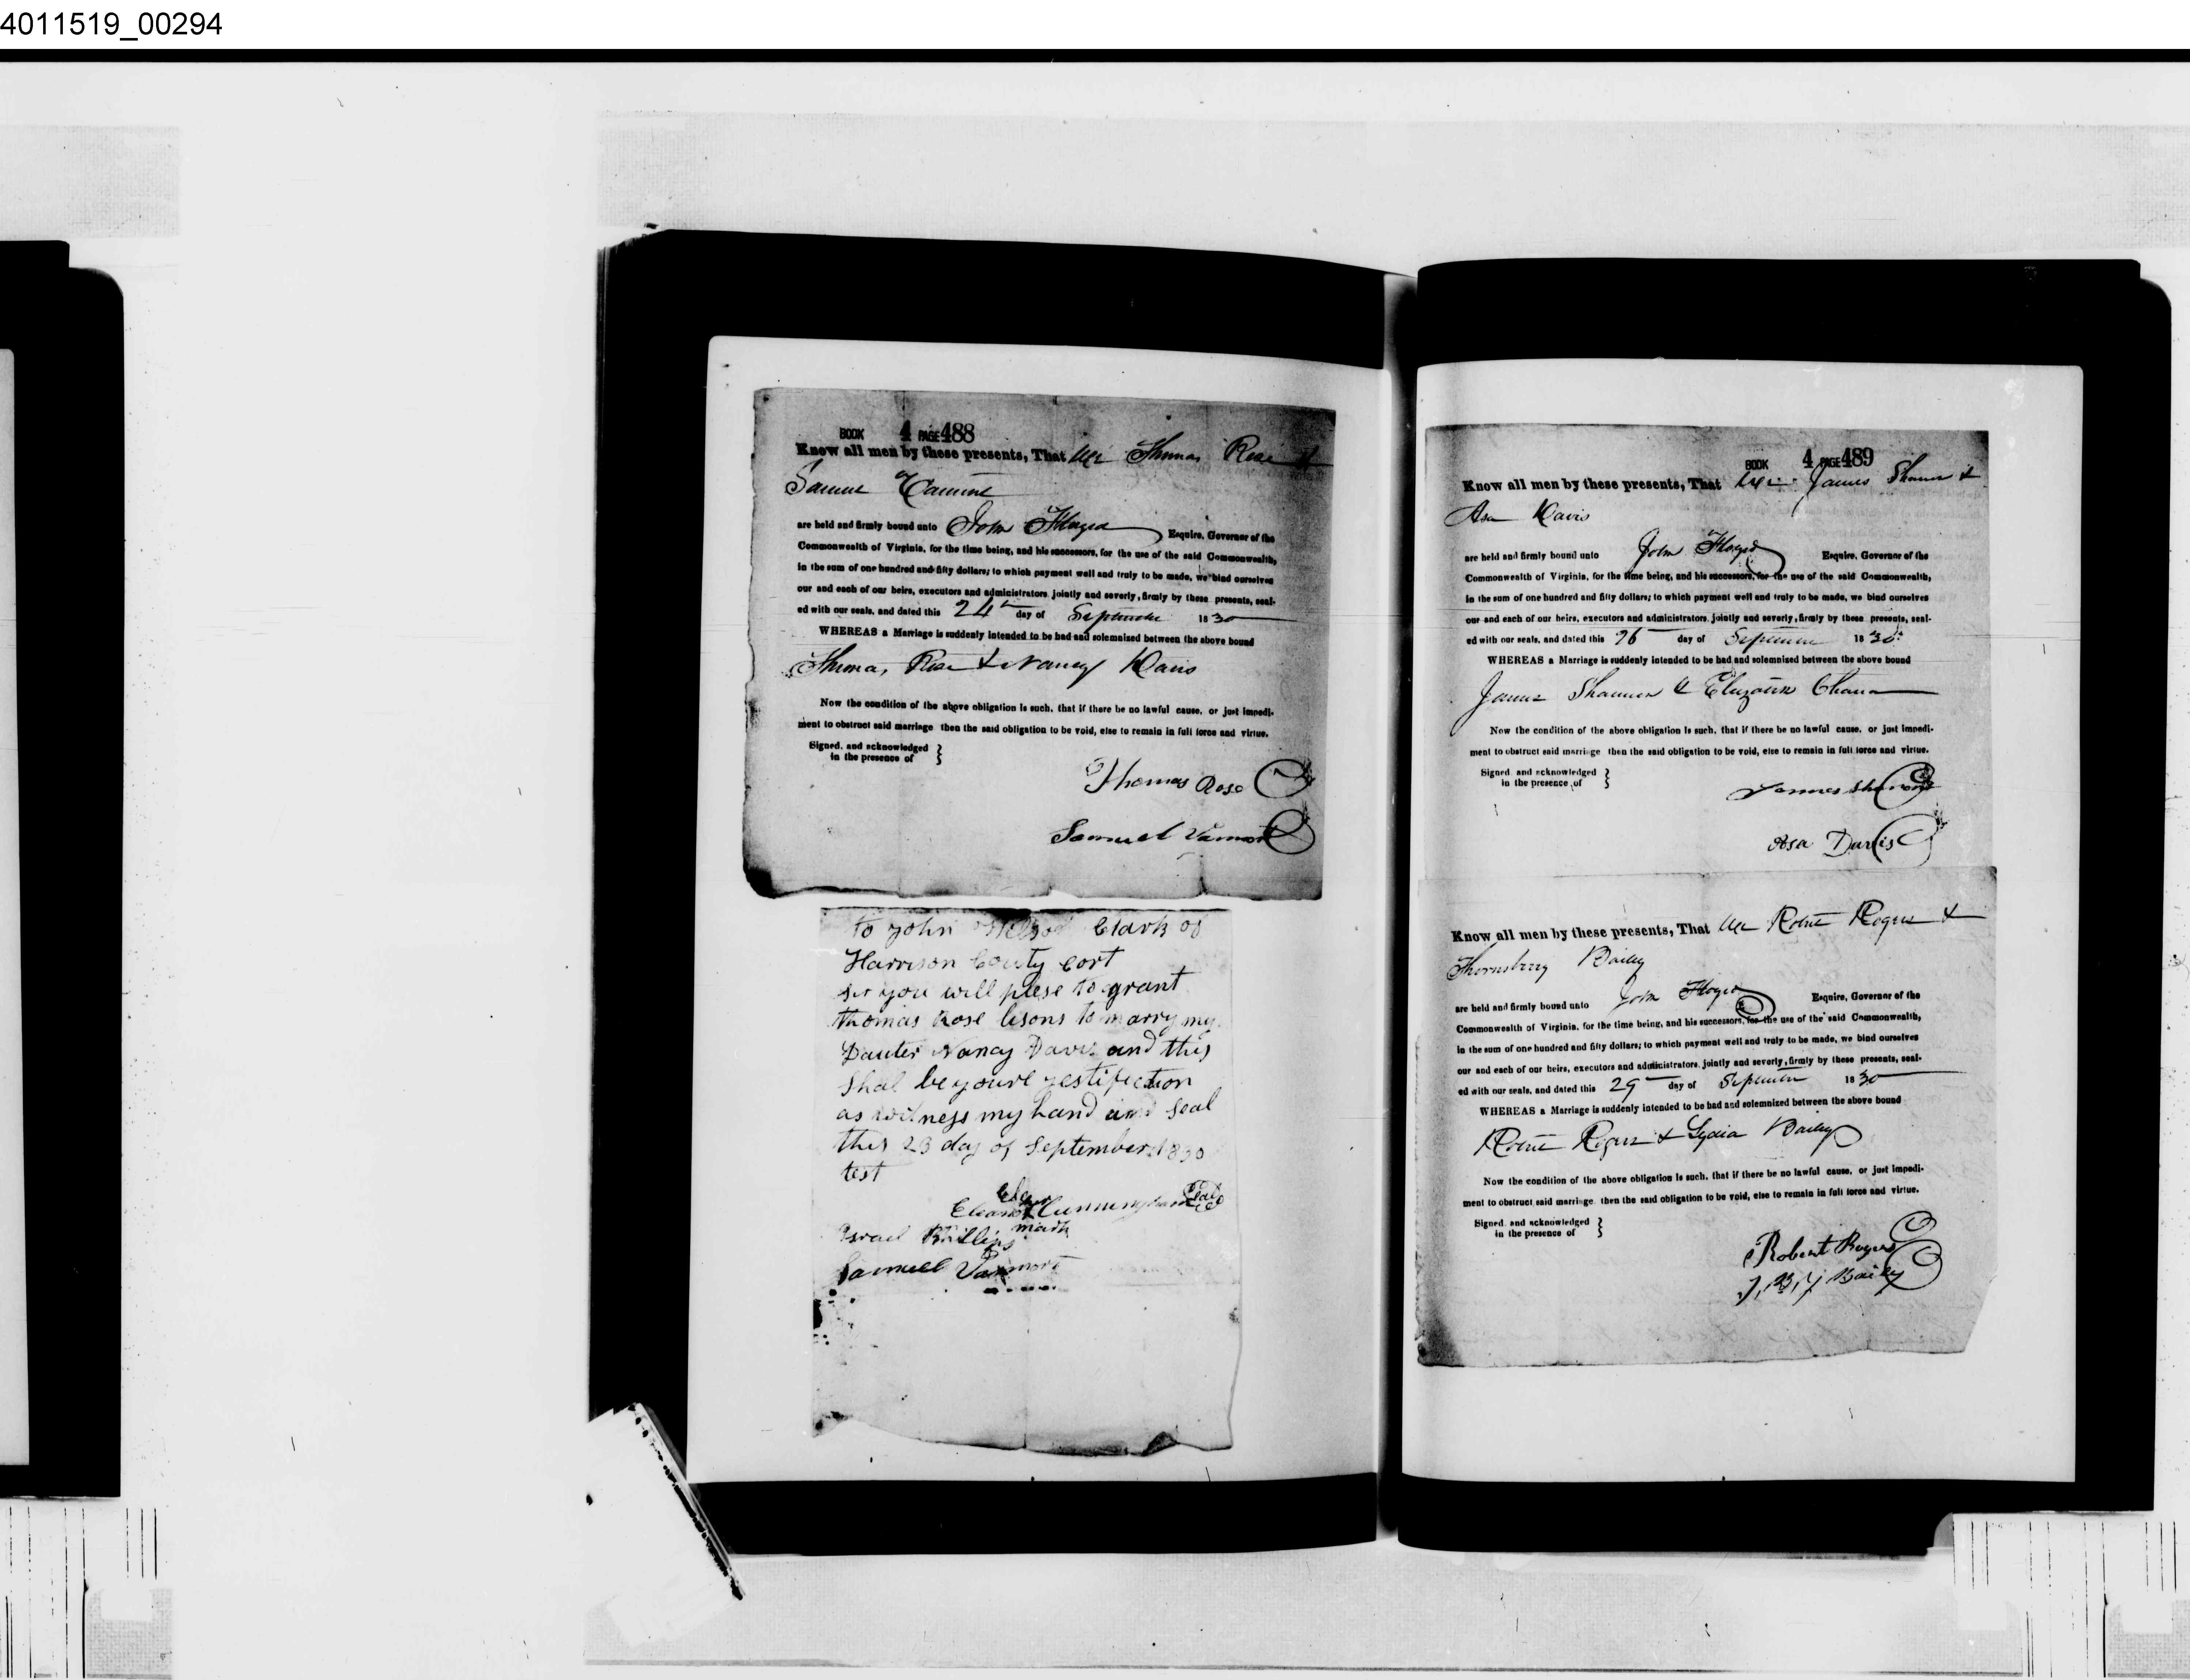 4011519_00294
BOOK 4 PAGE 488
Know all men by these presents, That We Thomas Rose &
Samuel
are held and firmly bound unto John Floyd Esquire, Governor of the
Commonwealth of Virginia, for the time being, and his successors, for the use of the said Commonwealth,
in the sum of one hundred and fifty dollars; to which payment well and truly to be made, we bind ourselves
our and each of our heirs, executors and administrators jointly and severly, firmly by these presents, seal-
ed with our seals, and dated this 24th day of September 1830
WHEREAS a Marriage is suddenly intended to be had and solemnized between the above bound
Thomas Rose & Nancy Davis
Now the condition of the above obligation is such, that if there be no lawful cause, or just impedi-
ment to obstruct said marriage then the said obligation to be void, else to remain in full force and virtue.
Signed, and acknowledged }
in the presence of
Thomas Rose
Samuel
to John Clark of
Harrison County cort
sir you will plese to grant
thomas Rose lisons to marry my
Dauter Nancy Davis and this
shal be youre gestification
as witness my hand and seal
this 23 day of September 1830
test
her
Eleanor Cunningham Seal
mark
Israel Phillips
Samuell
BOOK 4 PAGE 489
Know all men by these presents, That We James &
Asa Davis
are held and firmly bound unto John Floyd Esquire, Governor of the
Commonwealth of Virginia, for the time being, and his successors, for the use of the said Commonwealth,
in the sum of one hundred and fifty dollars; to which payment well and truly to be made, we bind ourselves
our and each of our heirs, executors and administrators jointly and severly, firmly by these presents, seal-
ed with our seals, and dated this 26 day of September 1830
WHEREAS a Marriage is suddenly intended to be had and solemnized between the above bound
James & Elizabeth
Now the condition of the above obligation is such, that if there be no lawful cause, or just impedi-
ment to obstruct said marriage then the said obligation to be void, else to remain in full force and virtue.
Signed, and acknowledged }
in the presence of
James
Asa Davis
Know all men by these presents, That We Robert Rogers &
Thornsberry Bailey
are held and firmly bound unto John Floyd Esquire, Governor of the
Commonwealth of Virginia, for the time being, and his successors, for the use of the said Commonwealth,
in the sum of one hundred and fifty dollars; to which payment well and truly to be made, we bind ourselves
our and each of our heirs, executors and administrators jointly and severly, firmly by these presents, seal-
ed with our seals, and dated this 29 day of September 1830
WHEREAS a Marriage is suddenly intended to be had and solemnized between the above bound
Robert Rogers & Lydia Bailey
Now the condition of the above obligation is such, that if there be no lawful cause, or just impedi-
ment to obstruct said marriage then the said obligation to be void, else to remain in full force and virtue.
Signed, and acknowledged }
in the presence of
Robert Rogers
Bailey